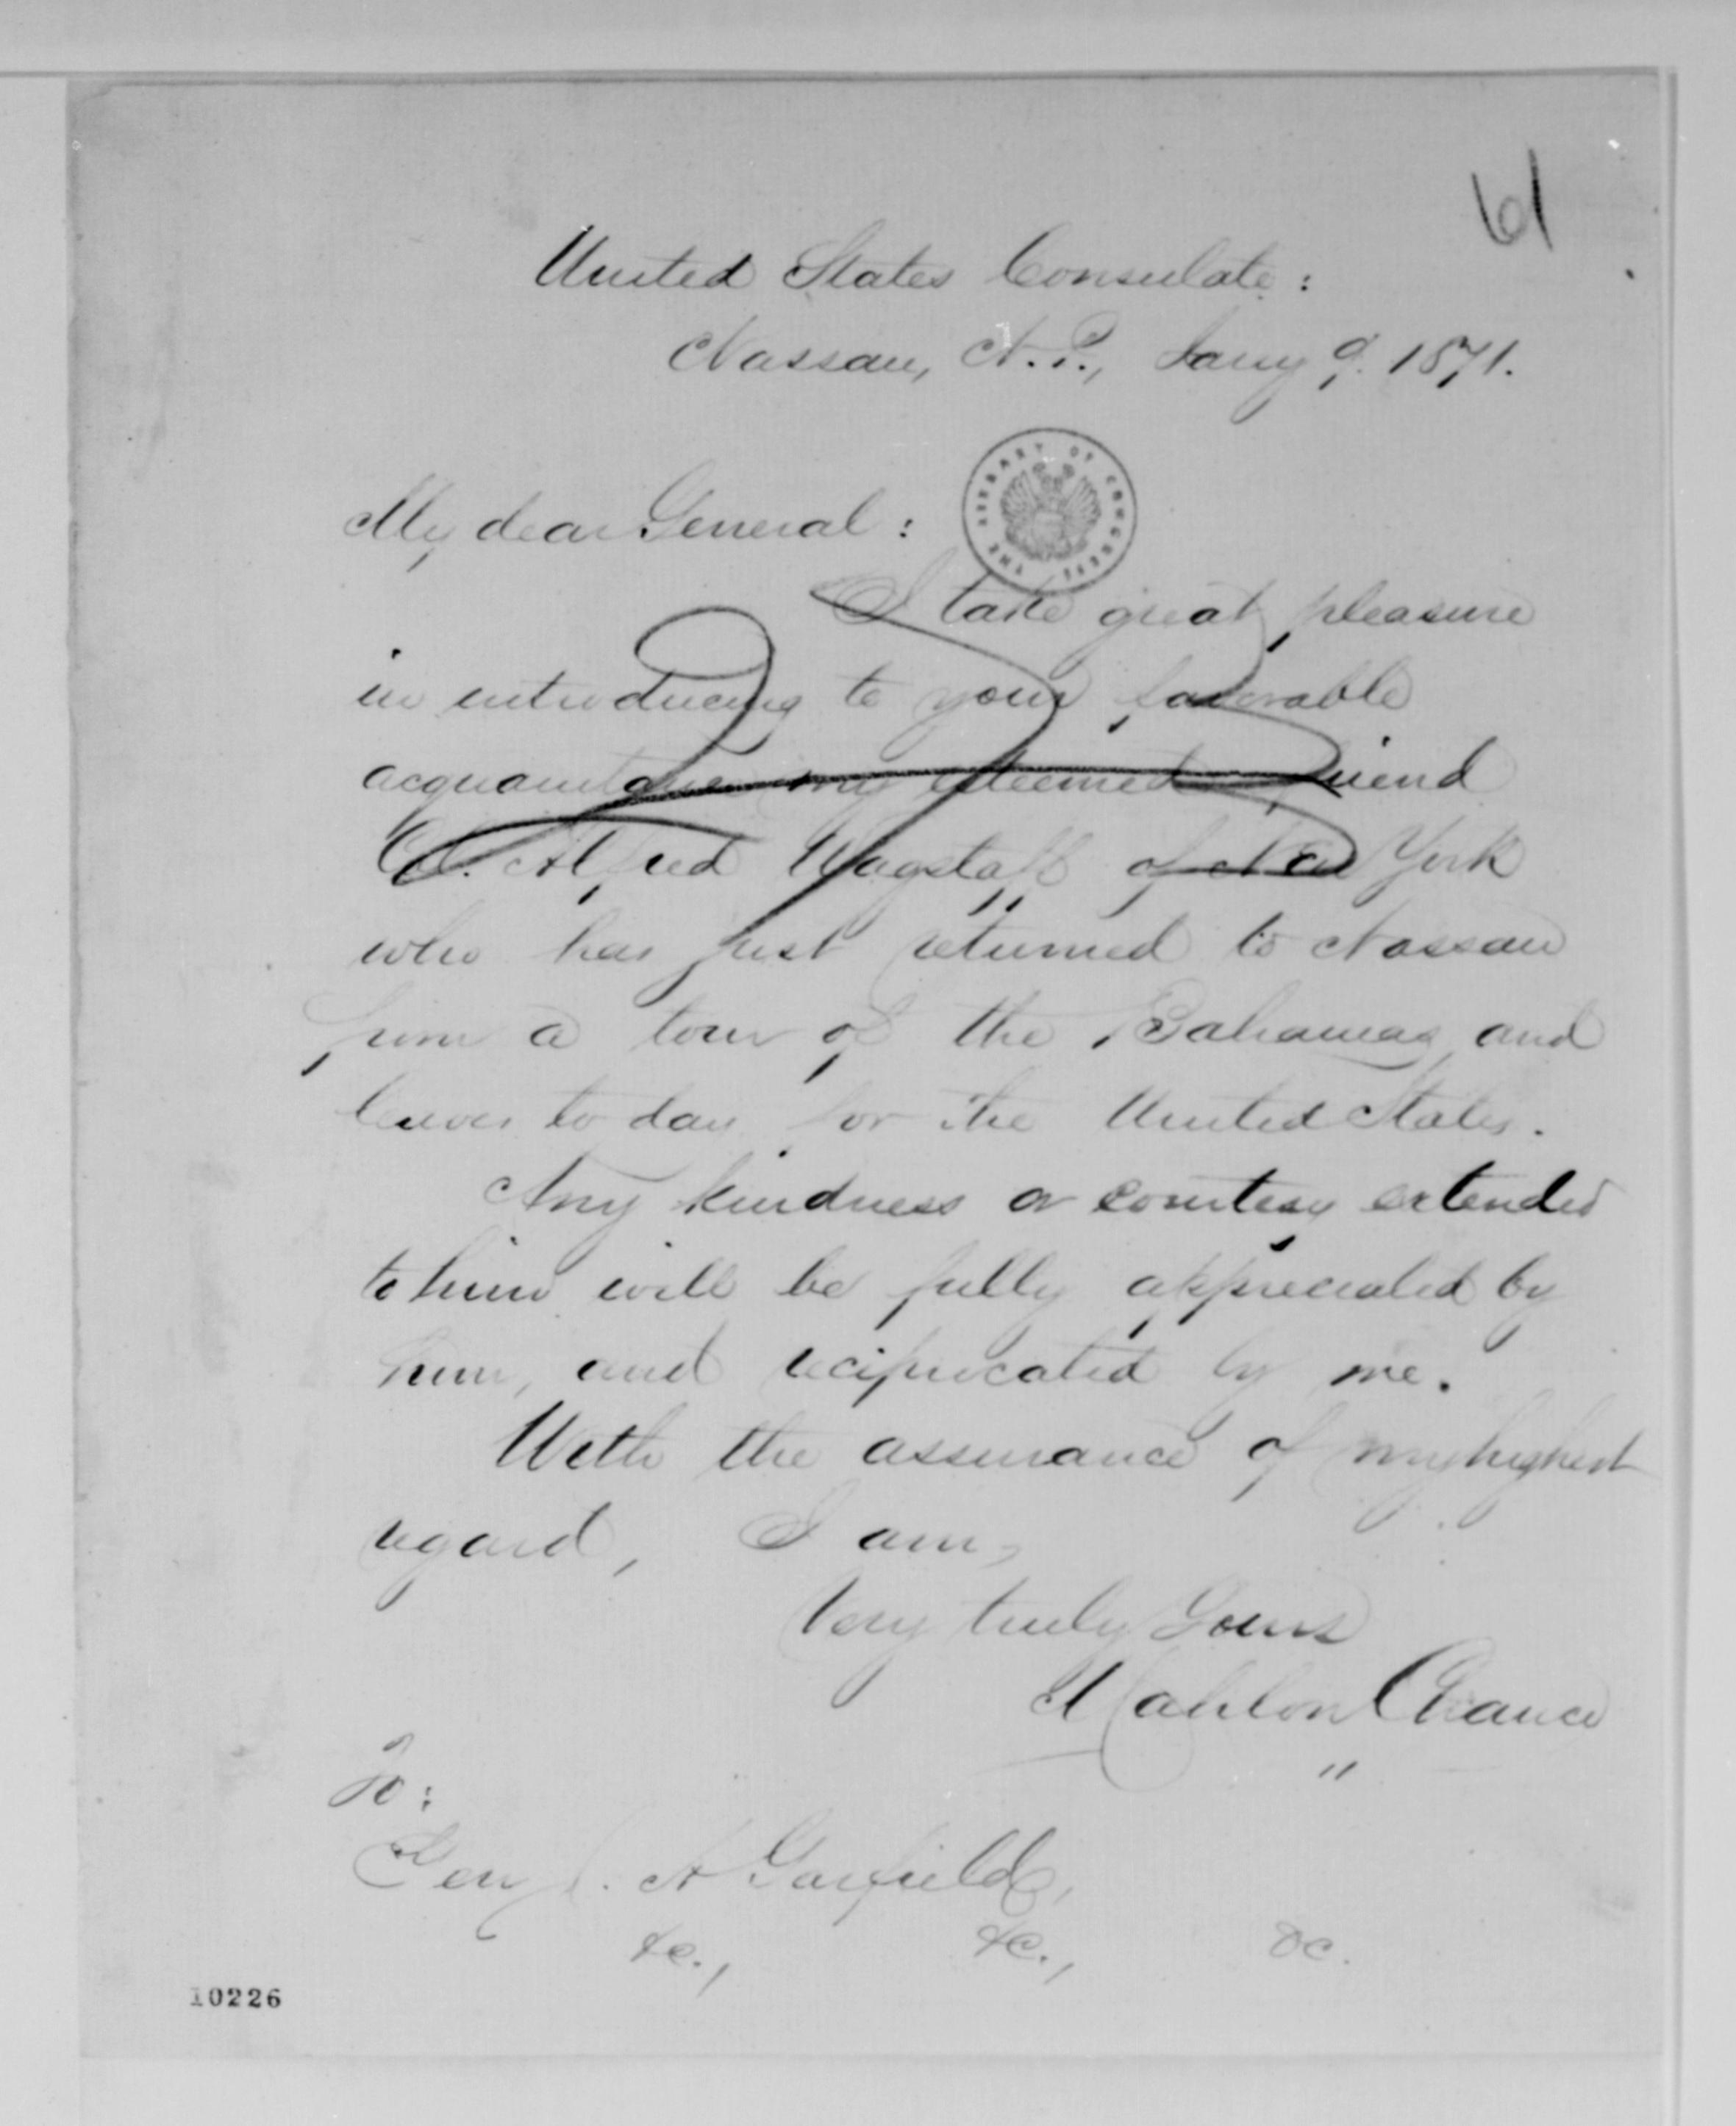 61
United States Consulate:
Nassau, N.P., Jany 9. 1871.
My dear General:
THE LIBRARY OF CONGRESS
I take great pleasure
in introducing to your favorable
acquaintance my esteemed friend
Col. Alfred Wagstaff of New York
who has just returned to Nassau
from a tour of the Bahamas and
leaves to day for the United States.
Any kindness or courtesy extended
to him will be fully appreciated by
him, and reciprocated by me.
With the assurance of my highest
regard, I am,
Very truly Yours
Mahlon Chance
To:
Gen J. A Garfield,
&c., &c., &c.
10226